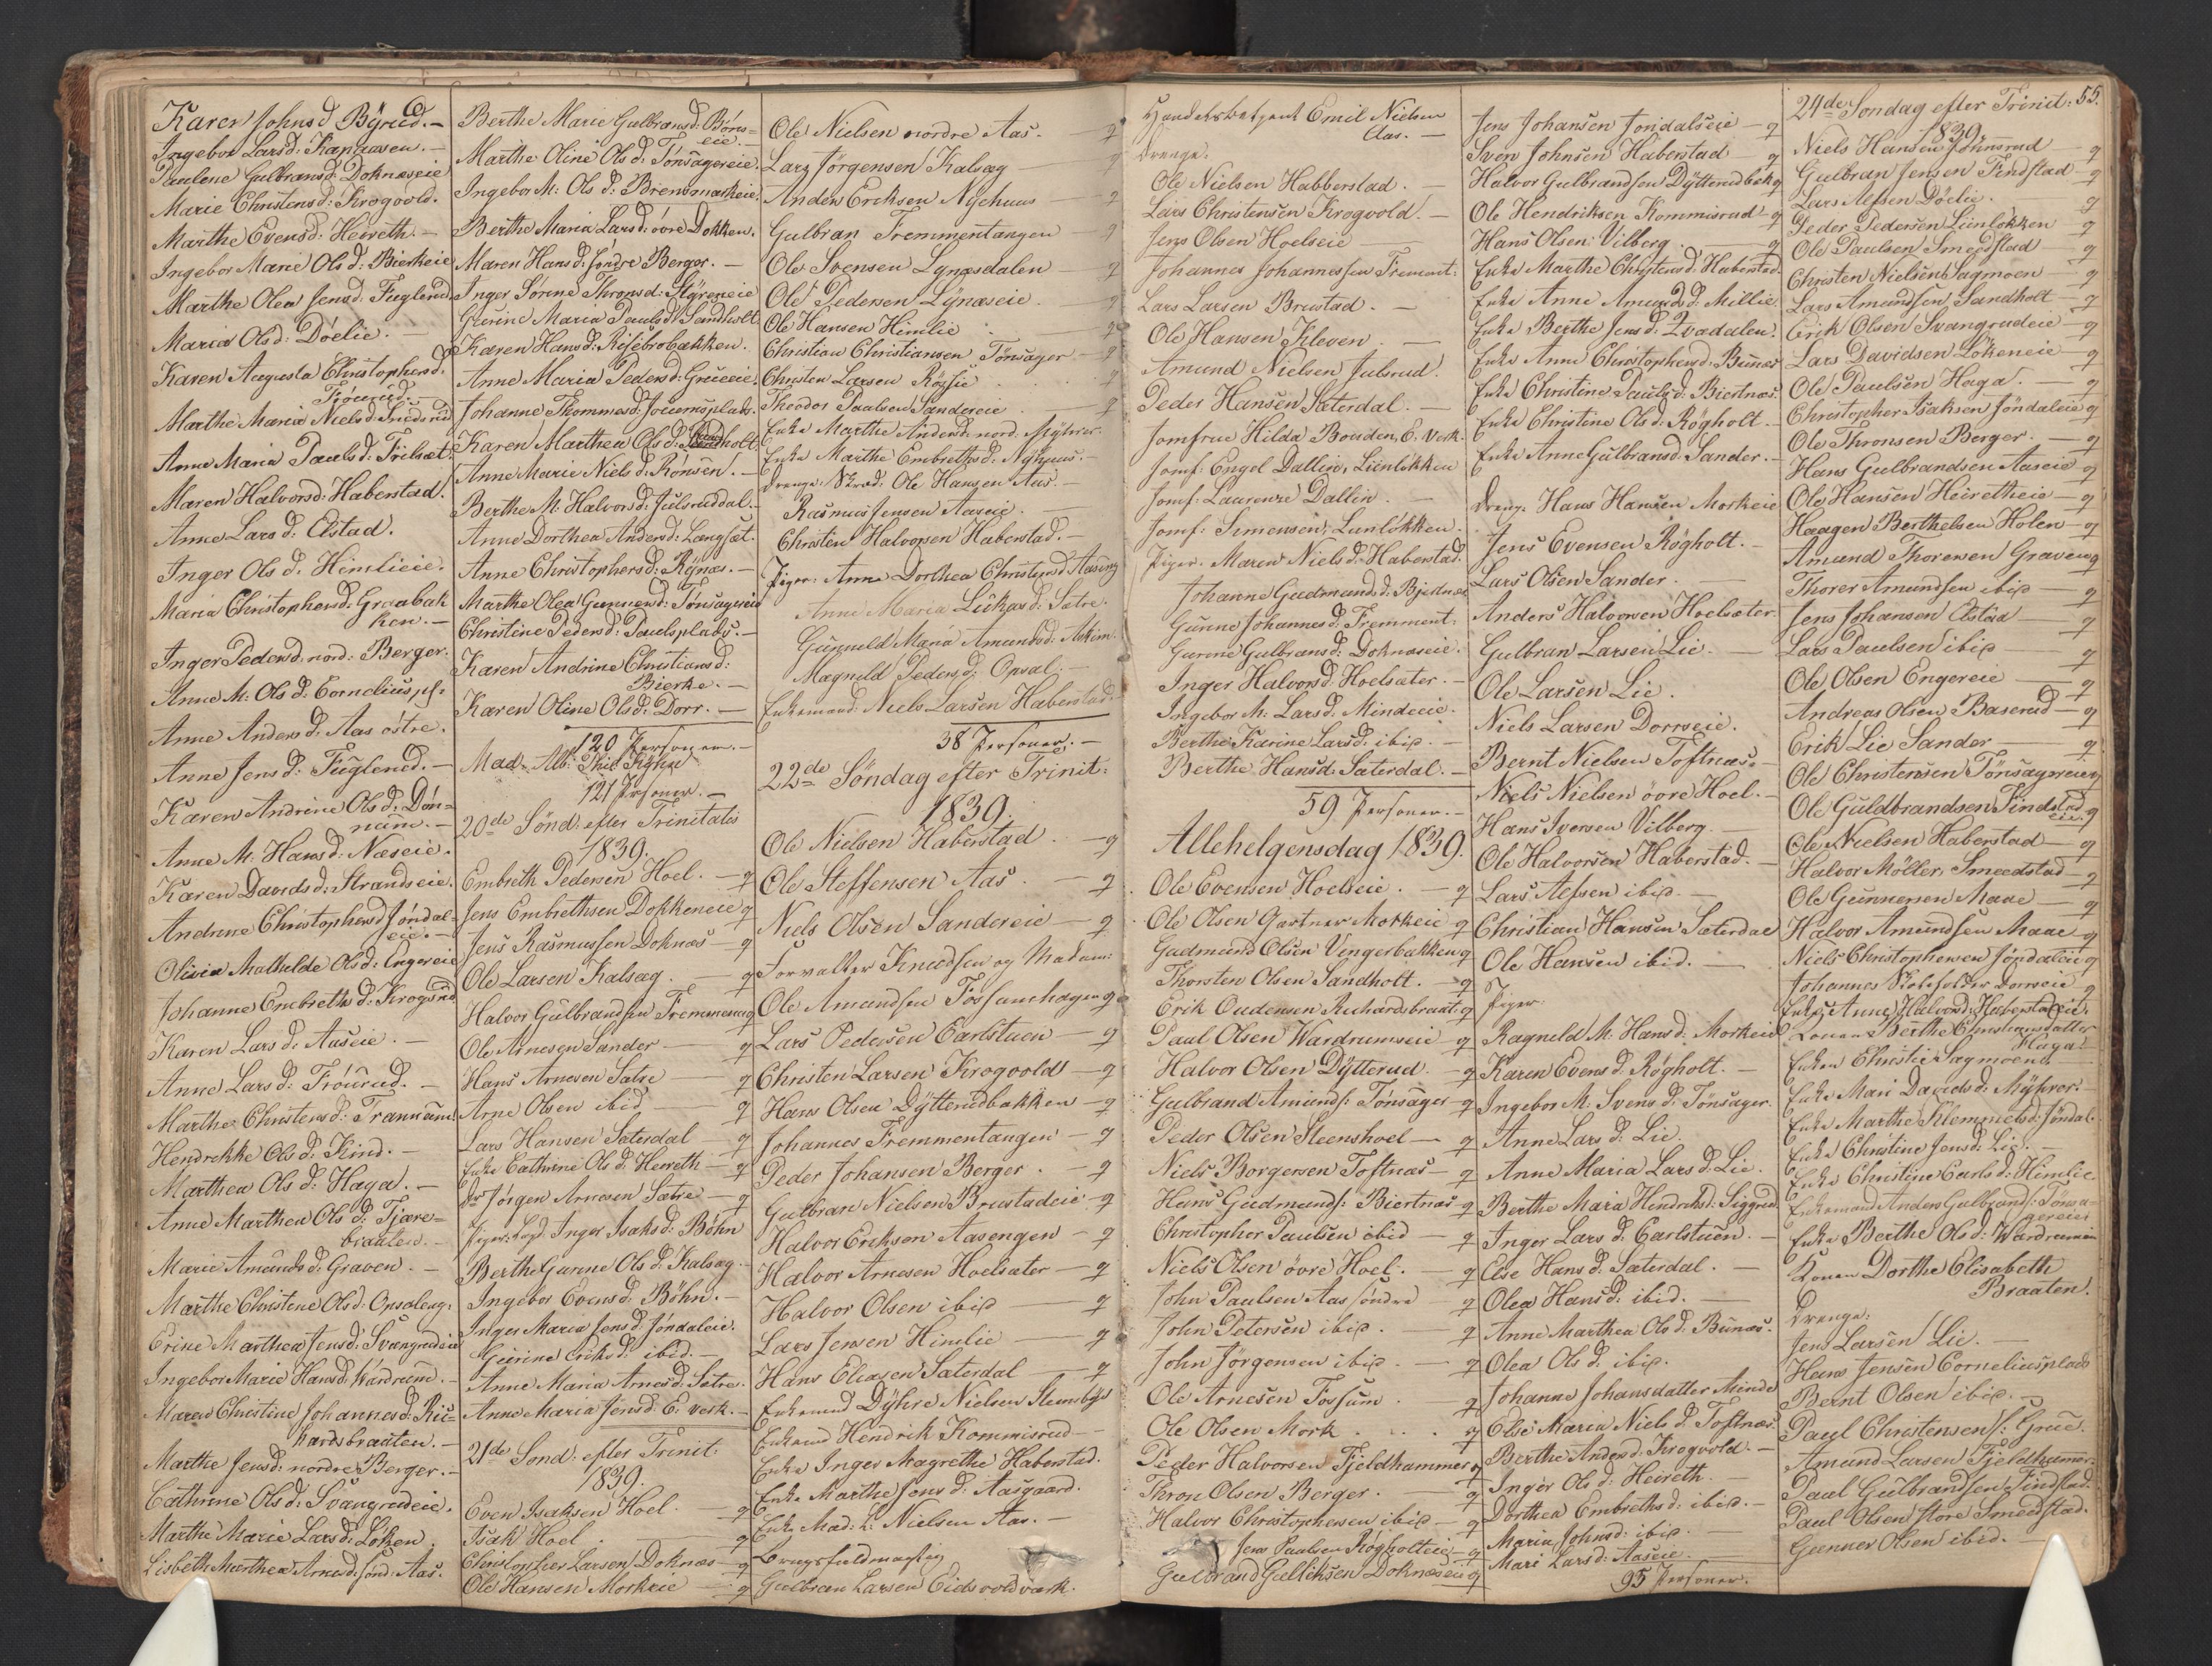 Karen Johnsd Byrud. –
Ingebor Larsd: Kapaasen. –
Paulene Gulbransd Doknæseie
Marie Christensd: Krogvold.
Marthe Evensd: Heireth. –
Ingebor Marie Olsd: Bierkeie
Marthe Olea Jensd: Fuglerud
Maria Olsd: Döelie. –
Karen Augusta Christophersd:
Tröerud. –
Marthe Maria Nielsd
Anne Maria Paulsd:
Maren Halvorsd: Haberstad.
Anne Larsd: Elstad.
Inger Olsd. Himlieie.
Maria Christophersd: Graabak
ken. –
Inger Pedersd. nord: Berger.
Anne M: Olsd: Corneliuspl:
Anne Andersd: Aas östre.
Anne Jensd: Fuglerud. –
Karen Andrine Olsd: Dön-
num. –
Anne M: Hansd: Næseie.
Karen Davidsd: Strandseie.
Andrine Christophersd Jöndal-
eie. –
Olivia Mathilde Olsd: Engereie
Johanne Embrethsd: Krogsrud
Karen Larsd: Aaseie. –
Anne Larsd: Tröerud. –
Marthe Christensd: Trannum.
Hendrikke Olsd: Kind. –
Marthea Olsd: Haga. –
Anne Marthea Olsd: Tjære-
braaten. –
Marie Amundsd: Graven. –
Marthe Christene Olsd: Opsaleng.
Erine Marthea Jensd: Svangrudeie
Ingebor Marie Hansd: Wardrum. –
Maren Christine Johannesd: Ric-
hardsbraaten. –
Marthe Jensd: nordre Berger. –
Cathrine Olsd: Svangrudeie.
Marthe Marie Larsd: Löken.
Lisbeth Marthea Arnesd: sönd: Aas.
Berthe Marie Gulbransd: Böns-
eie. –
Marthe Oline Olsd: Tönsagereie.
Ingebor M: Olsd: Brensmarkeie.
Berthe Maria Larsd: övre Dokken.
Maren Hansd: söndre Berger. –
Inger Sörine Thronsd: Styreneie
Gurine Maria Paulsd Sandholt
Karen Hansd: Risebrobakken.
Anne Maria Pedersd: Grueeie.
Johanne Thommesd: Joiumsplads.
Karen Marthea Olsd: Sandholt
Anne Marie Nielsd: Rönsen. –
Berthe M: Halvorsd: Julsruddal. –
Anne Dorthea Andersd: Langset.
Anne Christophersd: Rynæs. –
Marthe Olea Gunnersd: Tönsagereie
Christine Pedersd: Paulsplads. –
Karen Andrine Christiansd:
Bierke. –
Karen Oline Olsd: Dorr. –
120 Personer. –
Mad: Alb: Thid: Kyhn
121 Personer. –
20de Sönd: efter Trinitatis
1839.
Embreth Pedersen Hoel. – q
Jens Embrethsen Dokkeneie q
Jens Rasmussen Doknæs – q
Ole Larsen Kalsæg. – q
Halvor Gulbrandsen Tremmeneng q
Ole Arnesen Sander – q
Hans Arnesen Sætre – q
Arne Olsen ibid. – q
Lars Hansen Sæterdal – q
Enke Cathrine Olsd: Heireth – q
Dr Jörgen Arnesen Sætre – q
Piger: Logd. Inger Isaksd: Böhn
Berthe Gunne Olsd: Kalsæg. –
Ingebor Evensd: Böhn. –
Inger Maria Jensd: Jöndaleie.
Geirine Eriksd: ibid. –
Anne Maria Arnesd: Sætre.
Anne Maria Jensd: E: værk. –
21de Sönd: efter Trinit:
1839.
Even Isaksen Hoel – q
Isak Hoel – q
Christopher Larsen Doknæs – q
Ole Hansen Morkeie – q
Ole Nielsen nordre Aas. – q
Lars Jörgensen Kalsæg – q
Anders Eriksen Nyehuus – q
Gulbran Tremmentangen – q
Ole Svensen Lynæsdalen – q
Ole Pedersen Lynæseie. q
Ole Hansen Himlie – q
Christian Christiansen Tönsager – q
Christen Larsen Röysie q
Theodor Paulsen Sandereie – q
Enke Marthe Andersd: nord. Myhrer.
Enke Marthe Embrethsd: Nyhuus. –
Drenge: Skræd: Ole Hansen Aas. –
Rasmus Jensen Aaseie. –
Christen Halvorsen Haberstad. –
Piger: Anne Dorthea Christensd: Aaseng
Anne Maria Lukasd: Sætre.
Gunnuld Maria Amundsd: Askim.
Magnild Pedersd: Opsal. –
Enkemand: Niels Larsen Haberstad.
38 Personer. –
22de Söndag efter Trinit:
1839.
Ole Nielsen Haberstad – q
Ole Steffensen Aas – q
Niels Olsen Sandereie – q
Forvalter Knudsen og Madam:
Ole Amundsen Fossumhagen q
Lars Pedersen Carlstuen – q
Christen Larsen Krogvolds – q
Hans Olsen Dytterudbakken – q
Johannes Tremmentangen – q
Peder Johansen Berger – q
Gulbran Nielsen Brustadeie q
Halvor Eriksen Aasengen – q
Halvor Arnesen Hoelsæter – q
Halvor Olsen ibid – q
Lars Jensen Himlie – q
Hans Eliasen Sæterdal – q
Enkemand Dyhre Nielsen Steensbye
Enkemand Hendrik Kommisrud –
Enke Inger Magrethe Haberstad.
Enke Marthe Jensd: Aasgaard.
Enke Mad: L: Nielsen Aas. –
Brugsfuldmægtig
Gulbran Larsen Eidsvoldværk.
Handelsbetjent Emil Nielsen
Aas. –
Drenge:
Ole Nielsen Habberstad.
Lars Christensen Krogvold. –
Jens Olsen Hoelseie –
Johannes Johannessen Tremmet:
Lars Larsen Brustad. –
Ole Hansen Kleven. –
Amund Nielsen Julsrud.
Peder Hansen Sæterdal. –
Jomfrue Hilda Bouden, E. Værk.
Jomf: Engel Dallin, Lienlökken
Jomf: Laurenze Dallin. –
Jomf: Simensen, Lunlökken.
Piger. Maren Nielsd: Haberstad.
Johanne Gudmundsd: Bjertnæs
Gunne Johannesd: Tremment:
Gunne Gulbransd: Doknæseie.
Inger Halvorsd: Hoelsæter. –
Ingebor M: Larsd: Mindeeie.
Berthe Karine Larsd: ibid. –
Berthe Hansd: Sæterdal. –
59 Personer. –
Allehelgensdag 1839.
Ole Evensen Hoelseie. – q
Ole Olsen Gartner Morkeie q
Gudmund Olsen Vengerbakken q
Thorsten Olsen Sandholt. – q
Erik Oudensen Richardsbraat: q
Paul Olsen Wardrumseie – q
Halvor Olsen Dytterud. – q
Gulbrand Amunds: Tönsager q
Peder Olsen Steenshoel – q
Niels Borgersen Toftnæs – q
Hans Gudmunds: Biertnæs q
Christopher Paulsen ibid – q
Niels Olsen övre Hoel. – q
John Paulsen Aas söndre q
John Petersen ibid. – q
John Jörgensen ibid. – q
Ole Arnesen Fossum q
Ole Olsen Mork . . . q
Peder Halvorsen Fjeldhammer q
Thron Olsen Berger. – q
Halvor Christophersen ibid – q
Jens Paulsen Rögholteie – q
Gulbrand Gulliksen Doknæseie q
Jens Johansen Jondalseie – q
Sven Johnsen Haberstad – q
Halvor Gulbrandsen Dytterudbak q
Ole Hendriksen Kommisrud q
Hans Olsen Vilberg – q
Enke Marthe Christensd: Haberstad.
Enke Anne Amundsd: Millie.
Enke Berthe Jensd: Qvadalen.
Enke Anne Christophersd: Bunæs
Enke Christine Paulsd: Biertnæs.
Enke Christine Olsd: Rögholt. –
Enke Anne Gulbransd: Sander. –
Dreng. Hans Hansen Morkeie
Jens Evensen Rögholt. –
Lars Olsen Sander. –
Anders Halvorsen Hoelsæter.
Gulbran Larsen Lie. –
Ole Larsen Lie.
Niels Larsen Dorrseie.
Bernt Nielsen Toftnæs. –
Niels Nielsen övre Hoel. –
Hans Iversen Vilberg. –
Ole Halvorsen Haberstad. –
Lars Alfsen ibid. –
Christian Hansen Sæterdal
Ole Hansen ibid. –
Piger.
Ragneld M: Hansd: Morkeie
Karen Evensd: Rögholt. –
Ingebor M: Svensd: Tönsager.
Anne Larsd: Lie.
Anne Maria Larsd: Lie.
Berthe Maria Hendriksd: Siggerud
Inger Larsd: Carlstuen. –
Else Hansd: Sæterdal. –
Olea Hansd: ibid. –
Anne Marthea Olsd: Bunæs.
Olea Olsd: ibid.
Johanne Johansdatter Minde
Else Maria Nielsd: Toftnæs.
Berthe Andersd. Krogvold. –
Inger Olsd: Heireth. –
Dorthea Embrethsd: ibid. –
Maria Johnsd: ibid. –
Mari Larsd: Aaseie. –
95 Personer.
24de Söndag efter Trinit: 55.
1839.
Niels Hansen Johnsrud – q
Gulbran Jensen Findstad q
Lars Alfsen Döelie. q
Peder Pedersen Lienlökken q
Ole Paulsen Smedstad – q
Christen Nielsen Sagmoen – q
Lars Amundsen Sandholt – q
Erik Olsen Svangrudeie – q
Lars Davidsen Lökeneie – q
Ole Paulsen Haga. – q
Christopher Isaksen Jöndaleie q
Ole Thronsen Berger. – q
Hans Gulbrandsen Aaseie q
Ole Hansen Heiretheie – q
Haagen Berthelsen Holen – q
Amund Thoresen Graveng q
Thorer Amundsen ibid – q
Jens Johansen Elstad – q
Lars Paulsen ibid – q
Ole Olsen Engereie – q
Andreas Olsen Baserud – q
Erik Lie Sander – q
Ole Christensen Tönsagereie q
Ole Guldbrandsen Findstad
eie. q
Ole Nielsen Haberstad – q
Halvor Möller, Smedstad – q
Ole Gunnersen Maae – q
Halvor Amundsen Maae q
Niels Christophersen Jöndaleie q
Johannes Skolefolder Dorrseie q
Enke Anne Halvorsd: Haberstadeie.
Konen Berthe Christiansdatter
Haga.
Enken Christie Sagmoen.
Enke Mari Davidsd: Myhrer. –
Enke Marthe Klemmetsd: Jöndal.
Enke Christine Jensd: Lie. –
Enke Christine Carlsd: Himlie
Enkemand Anders Gulbrands: Tönsa-
gereie.
Enke Berthe Olsd: Wardrumeie
Konen Dorthe Elisabeth
Braaten.
Drenge:
Jens Larsen Lie. –
Hans Jensen Corneliusplads
Bernt Olsen ibid. –
Paul Christensen S: Grue.
Amund Larsen Fjeldhammer.
Paul Gulbrandsen Findstad.
Paul Olsen store Smedstad.
Gunner Olsen ibid. –